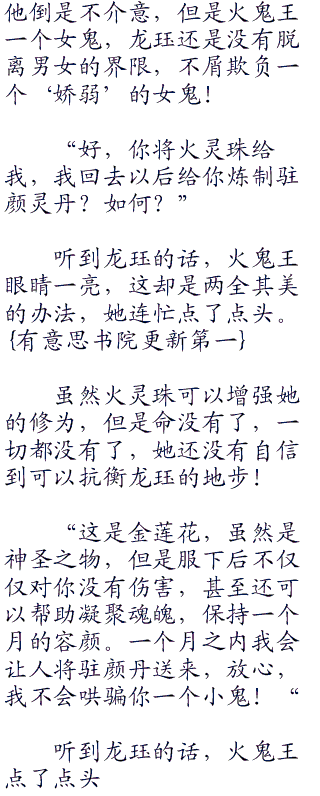 他倒是不介意，但是火鬼王
一个女鬼，龙珏还是没有脱
离男女的界限，不屑欺负一
个‘娇弱’的女鬼！
“好，你将火灵珠给
我，我回去以后给你炼制驻
颜灵丹？如何？”
听到龙珏的话，火鬼王
眼睛一亮，这却是两全其美
的办法，她连忙点了点头。
{有意思书院更新第一}
虽然火灵珠可以增强她
的修为，但是命没有了，一
切都没有了，她还没有自信
到可以抗衡龙珏的地步！
“这是金莲花，虽然是
神圣之物，但是服下后不仅
仅对你没有伤害，甚至还可
以帮助凝聚魂魄，保持一个
月的容颜。一个月之内我会
让人将驻颜丹送来，放心，
我不会哄骗你一个小鬼！“
听到龙珏的话，火鬼王
点了点头